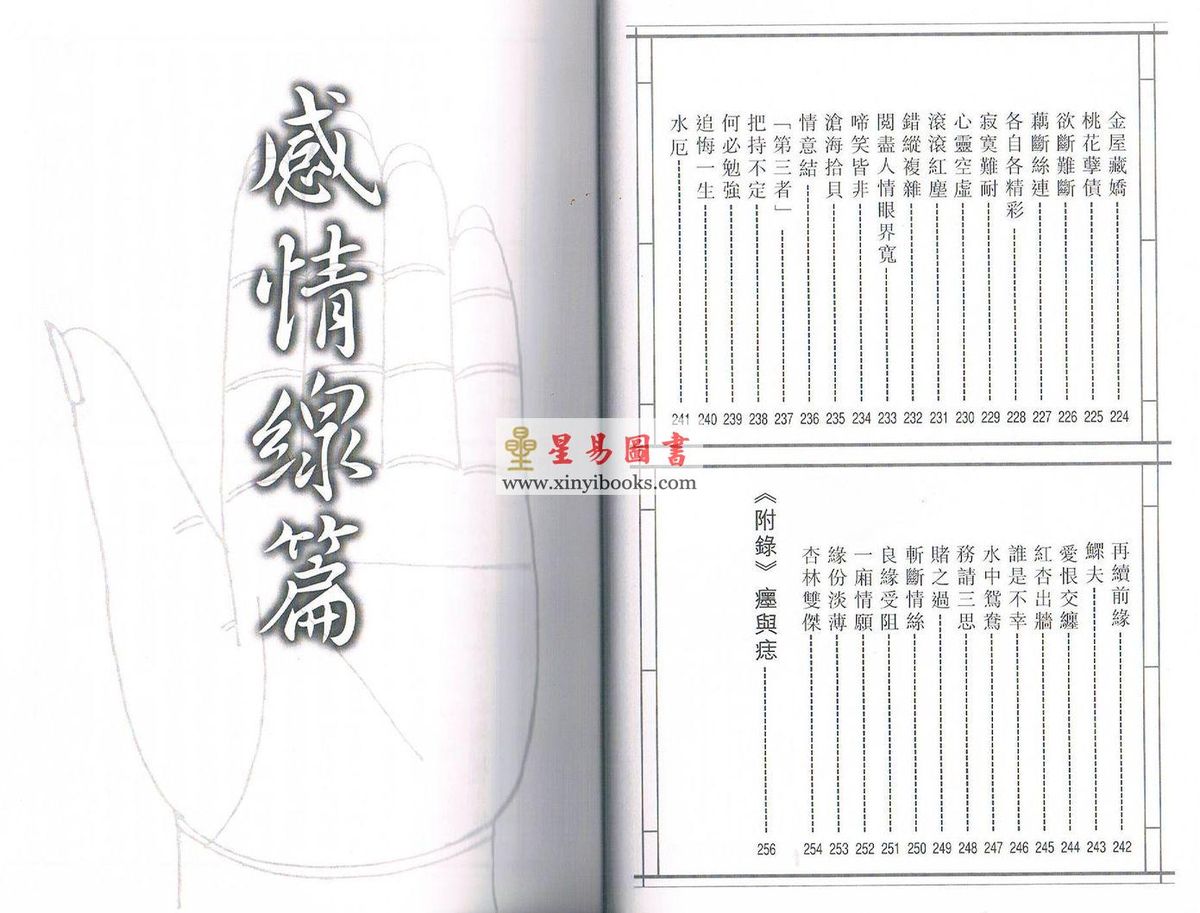 金屋藏嬌 224
桃花孽債 225
欲斷難斷 226
藕斷絲連 227
各自各精彩 228
寂寞難耐 229
心靈空虛 230
滾滾紅塵 231
錯縱複雜 232
閱盡人情眼界寬 233
啼笑皆非 234
滄海拾貝 235
情意結 236
「第三者」 237
把持不定 238
何必勉強 239
追悔一生 240
水厄 241
再續前緣 242
鰥夫 243
愛恨交纏 244
紅杏出牆 245
誰是不幸 246
水中鴛鴦 247
務請三思 248
賭之過 249
斬斷情絲 250
良緣受阻 251
一廂情願 252
緣份淡薄 253
杏林雙傑 254
《附錄》 癦與痣 256
感情線篇
星易圖書
www.xinyibooks.com